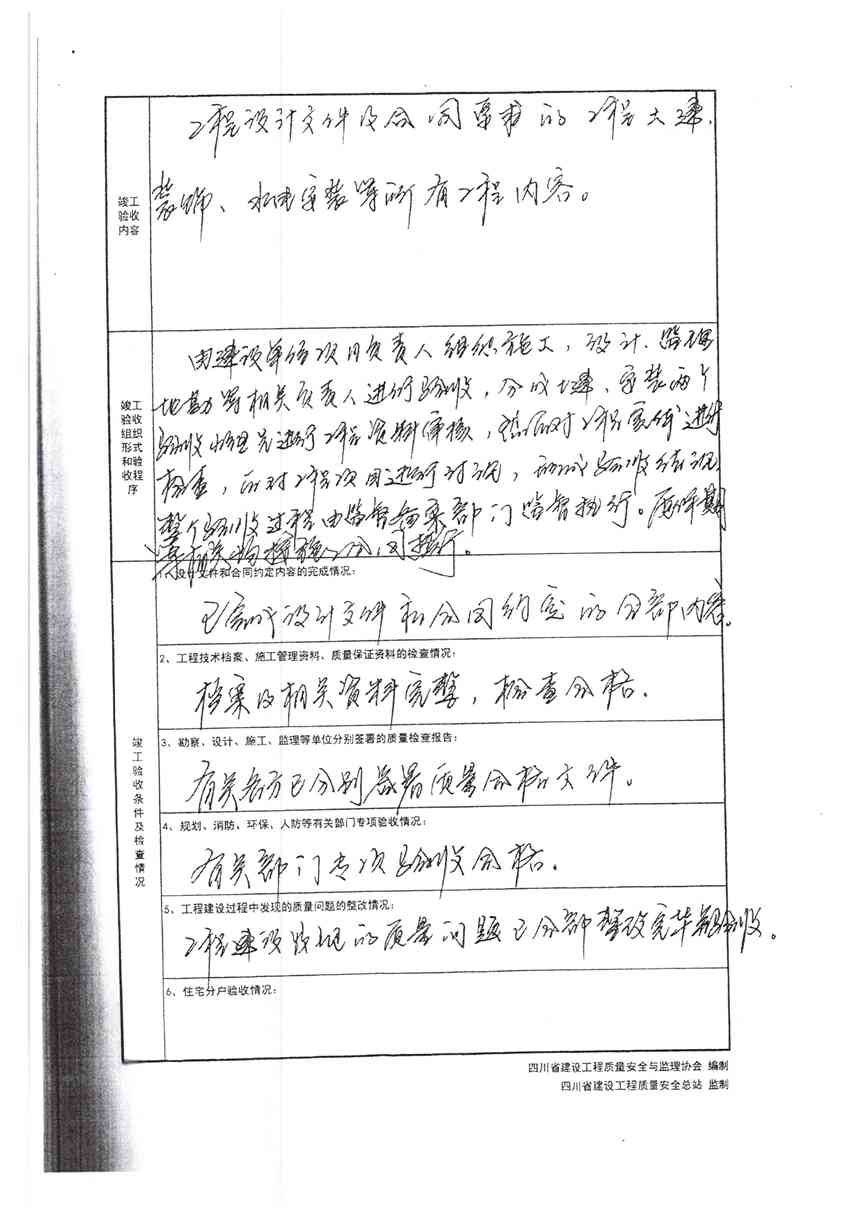 竣工
验收
内容
工程设计文件及合同要求的工程土建、
装饰、水电安装等所有工程内容。
竣工
验收
组织
形式
和验
收程
序
由建设单位项目负责人组织施工,设计、监理
地勘等相关负责人进行验收,分成土建、安装两个
验收组先进行工程资料审核,然后对工程实体进行
检查,
整个验收过程由监督备案部门监督执行。
竣工验收条件及检查情况
1、设计文件和合同约定内容的完成情况:
已完成设计文件和合同约定的全部内容。
2、工程技术档案、施工管理资料、质量保证资料的检查情况:
档案及相关资料完整,检查合格.
3、勘察、设计、施工、监理等单位分别签署的质量检查报告:
有关各方已分别签署质量合格文件。
4、规划、消防、环保、人防等有关部门专项验收情况:
有关部门专项验收合格.
5、工程建设过程中发现的质量问题的整改情况:
工程建设发现的质量问题已全部整改完毕验收。
6、住宅分户验收情况:
四川省建设工程质量安全与监理协会 编制
四川省建设工程质量安全总站 监制